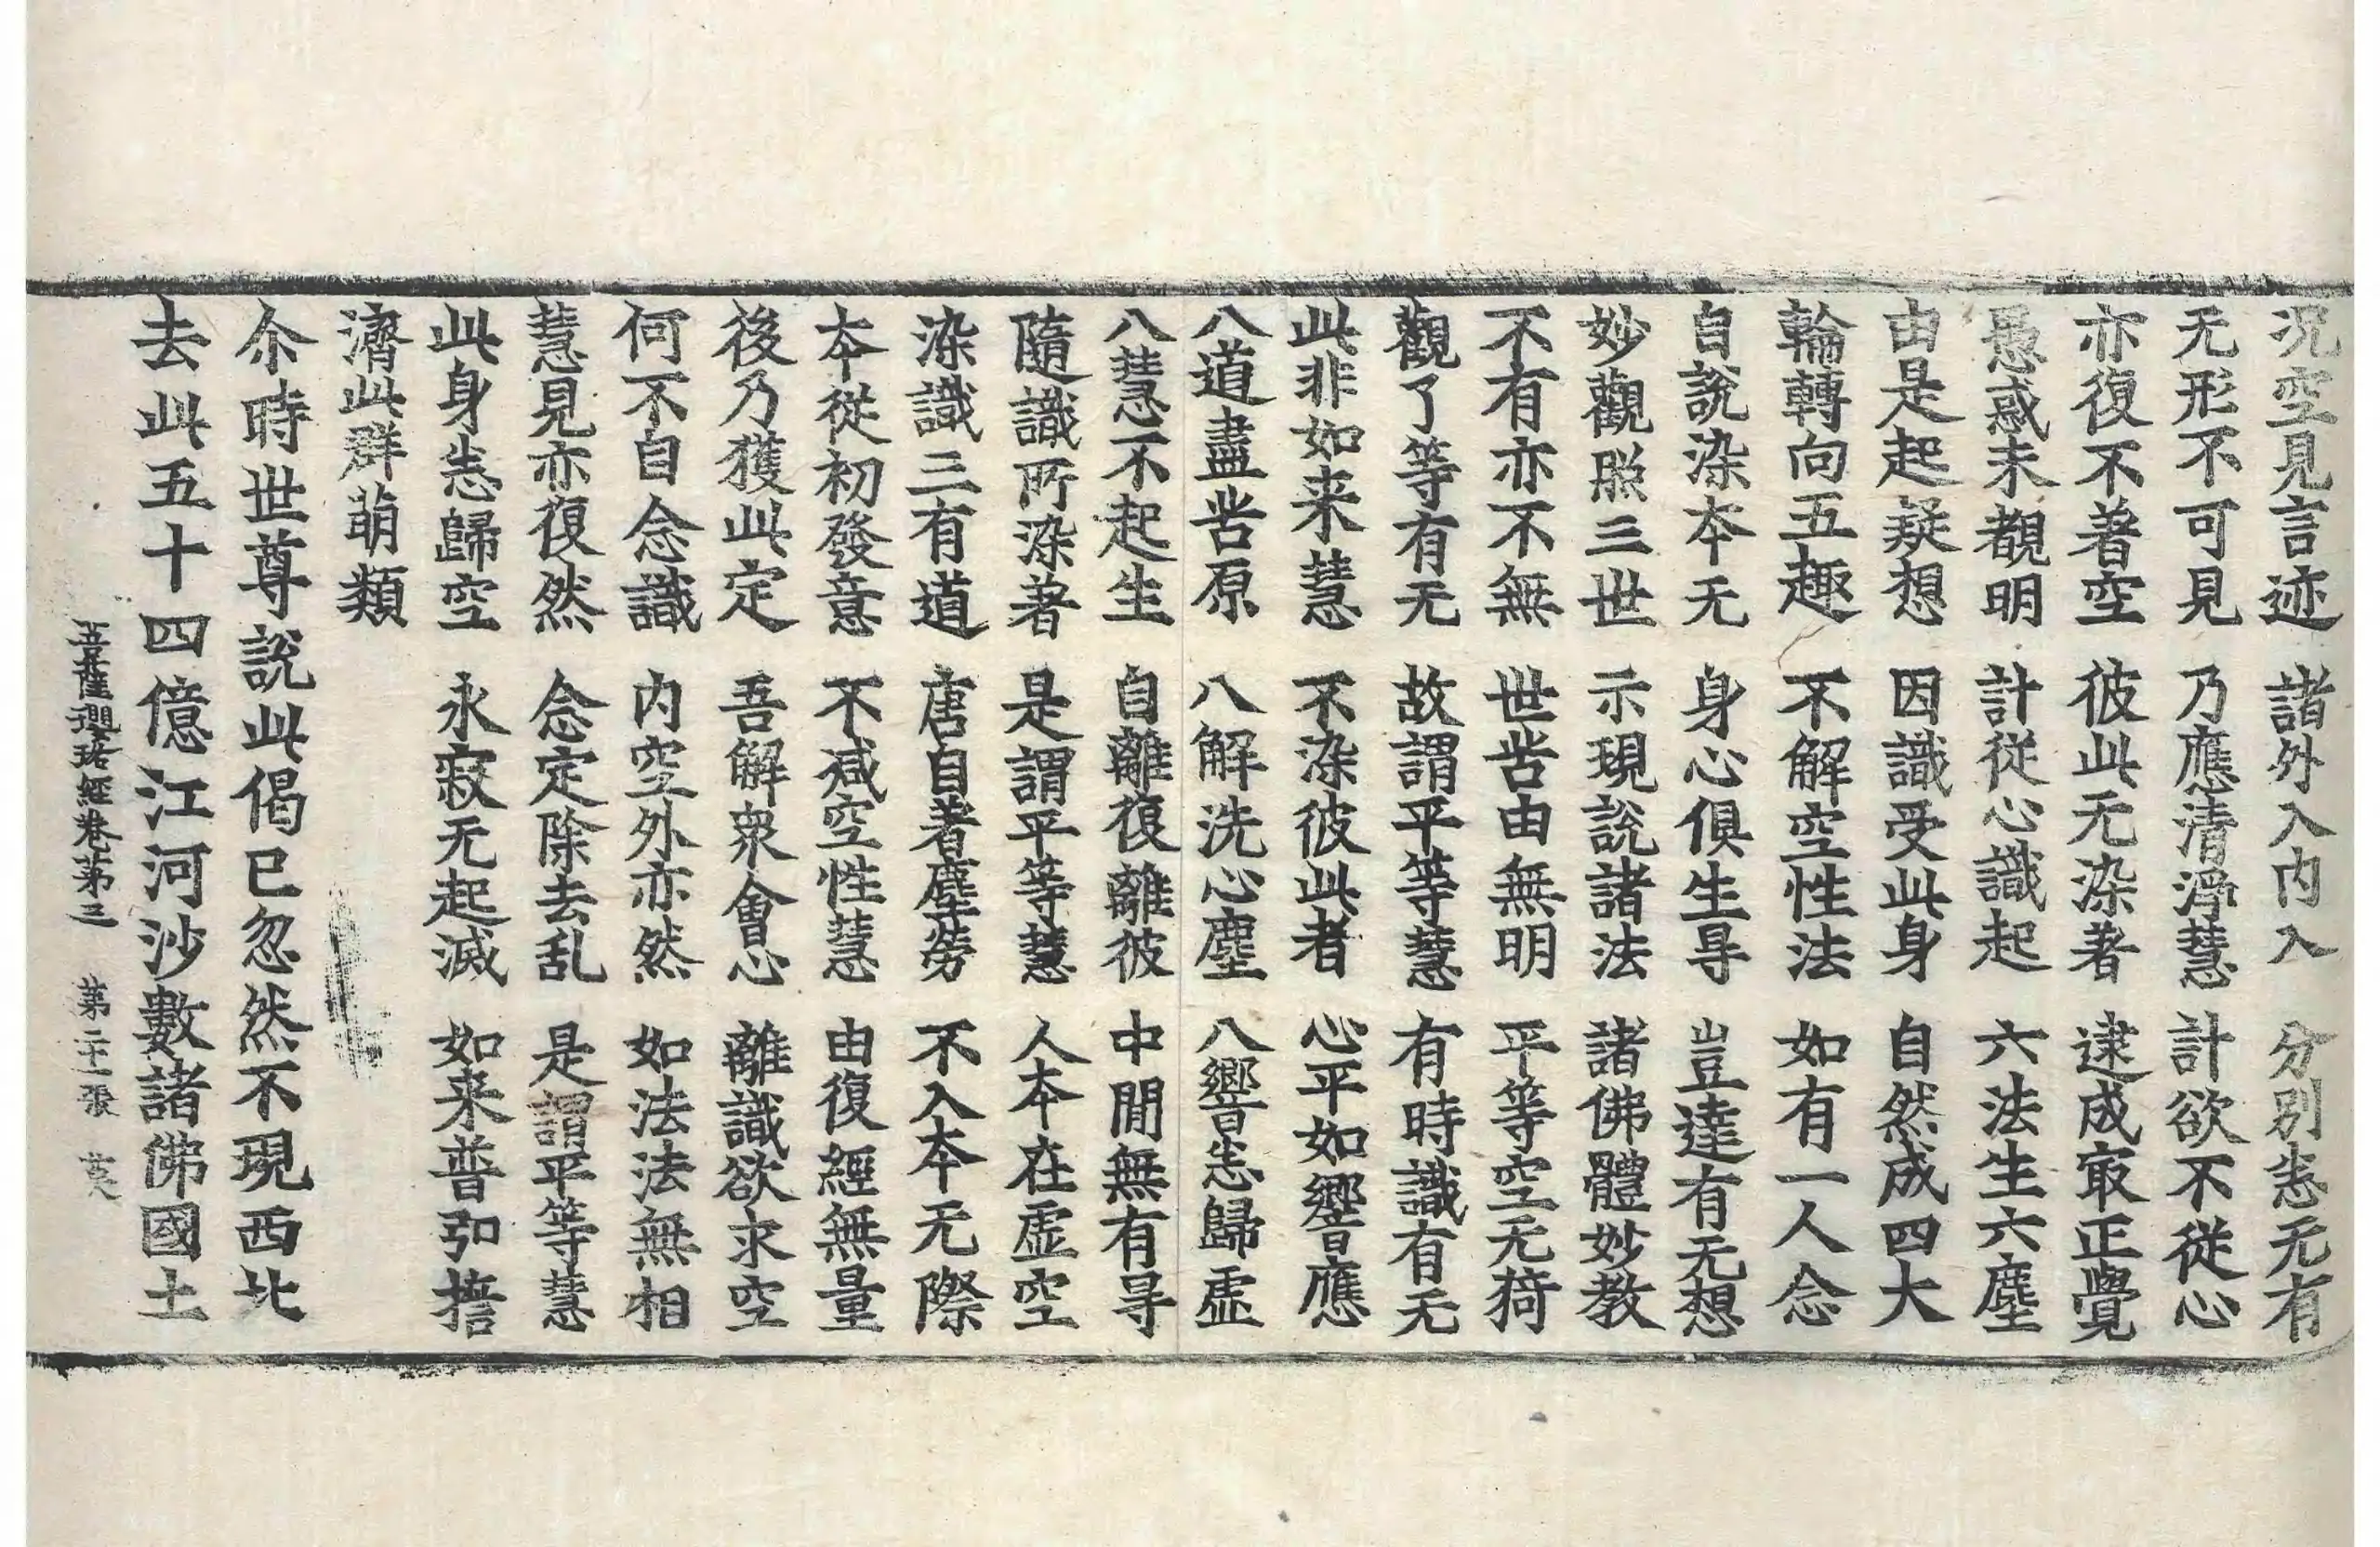 况空見言迹　諸外入内入　分別悉无有
无形不可見　乃應清淨慧　計欲不從心
亦復不著空　彼此无染著　逮成冣正覺
愚惑未覩明　計從心識起　六法生六塵
由是起疑想　因識受此身　自然成四大
輪轉向五趣　不解空性法　如有一人念
自說染本无　身心俱生㝵　豈達有无想
妙觀照三世　示現說諸法　諸佛體妙教
不有亦不無　世苦由無明　平等空无猗
觀了等有无　故謂平等慧　有時識有无
此非如来慧　不染彼此者　心平如響應
八道盡苦原　八解洗心塵　八響悉歸虛
八慧不起生　自離復離彼　中間無有㝵
隨識所染著　是謂平等慧　人本在虛空
染識三有道　唐自著塵勞　不入本无際
本從初發意　不減空性慧　由復經無量
後乃獲此定　吾解衆會心　離識欲求空
何不自念識　内空外亦然　如法法無相
慧見亦復然　念定除去乱　是謂平等慧
此身悉歸空　永寂无起滅　如来普弘擔
濟此群萌類
尒時世尊說此偈已忽然不現西北
去此五十四億江河沙數諸佛國土
菩薩瓔珞經卷第三　第二十一張　莫